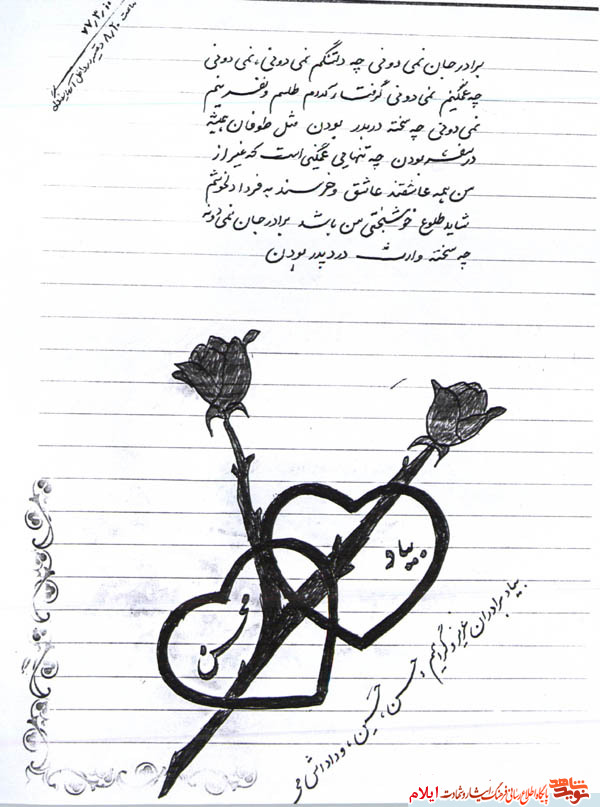 ۷۷٫۳٫۱۰
ساعت ۸٫۲۰
برادر جان نمی دونی چه دلتنگم نمی دونی، نمی دونی
چه غمگینم نمی دونی گرفتار کدوم طلسم و نفرینم
نمی دونی چه سخته در بدر بودن مثل طوفان همیشه
در سفر بودن چه تنهایی غمگینی است که غیر از
من همه عاشقند عاشق و خرسند به فردا دلخوشم
شاید طلوع خوشبختی من باشد برادر جان نمی دونه
چه سخته وارث درد پدر بودن
بیاد
محسن
بیاد برادران عزیز و گرامیم حسن، حسین، و داداش
نوید شاهد
پایگاه اطلاع رسانی فرهنگ ایثار و شهادت ایلام